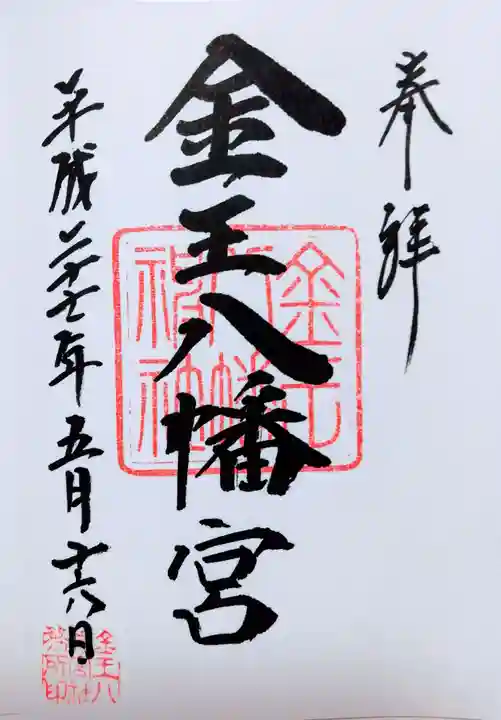 奉拝
金王八幡宮
平成二十七年五月十六日
金王
八幡
神社
金王八
幡宮社
務所印